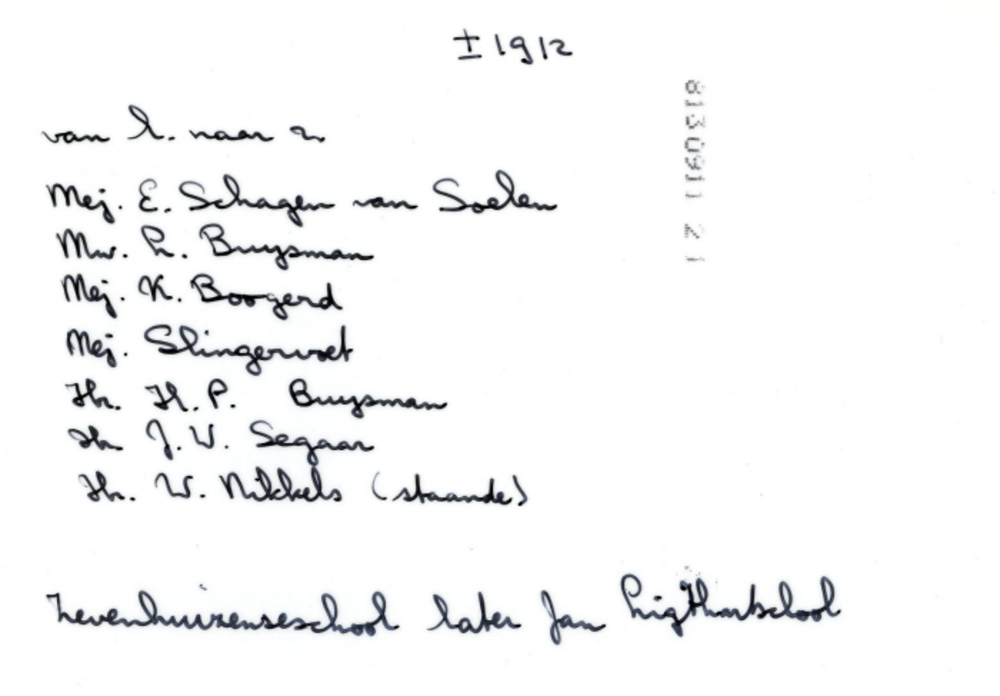 ± 1912
van l. naar r.
Mej. E. Schagen van Soelen
Mw. L. Buysman
Mej. K. Boogerd
Mej. Slingervoet
Hr. H.P. Buysman
Hr J.W. Segaar
Hr. W. Nikkels (staande)
Zevenhuizenseschool later Jan Ligthartschool
8130911 21